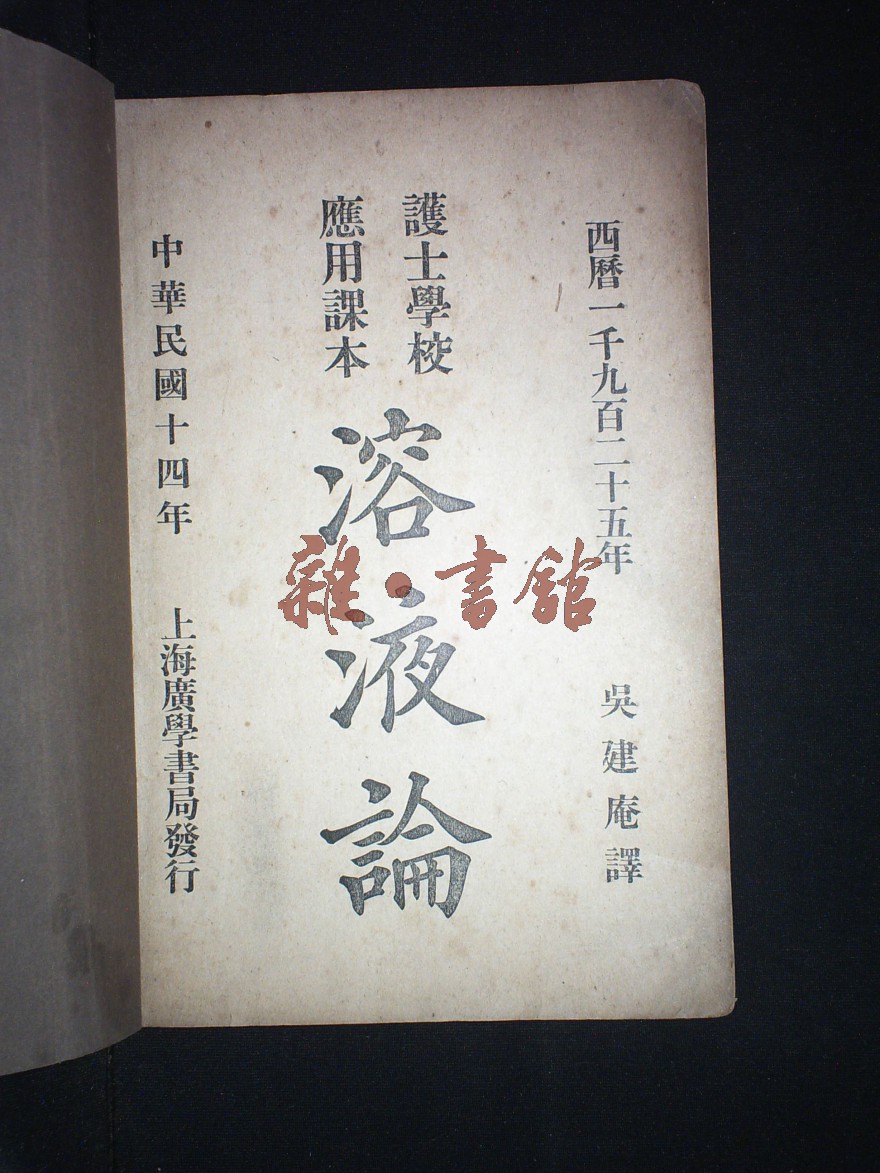 西曆一千九百二十五年
吳建庵譯
護士學校
應用課本
溶液論
中華民國十四年
上海廣學書局發行
雜·書館